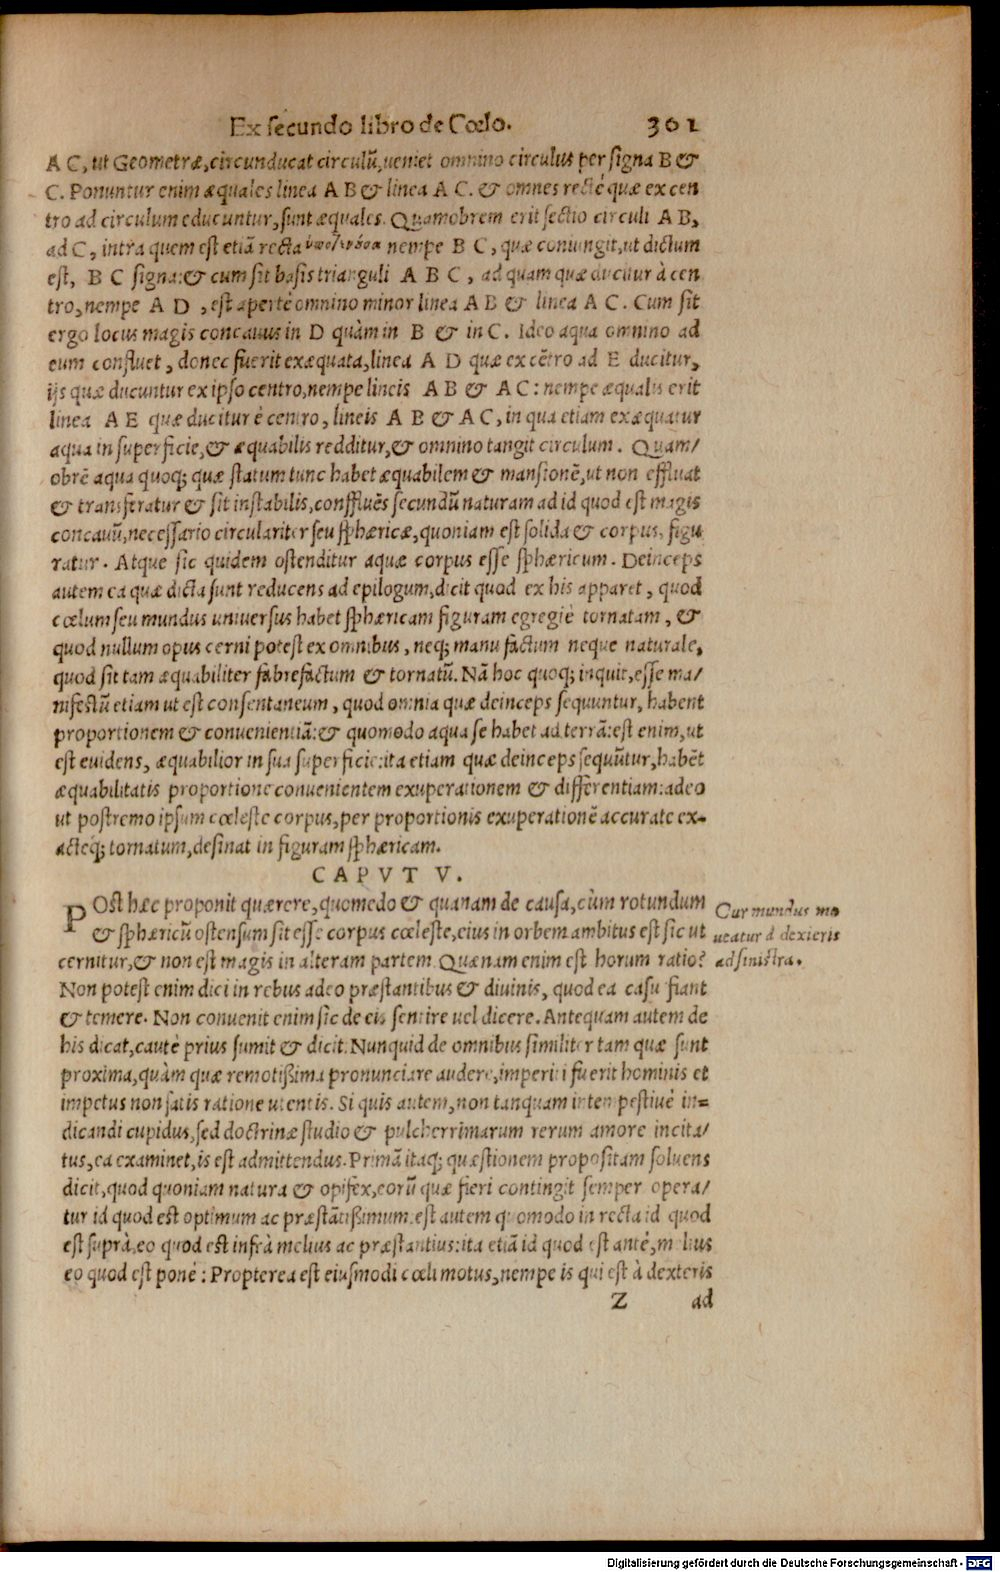 Ex secundo libro de Cœlo. 301
A C, ut Geometræ, circunducat circulũ, ueniet omnino circulus per signa B &
C. Ponuntur enim æquales linea A B & linea A C. & omnes recte quæ ex cen
tro ad circulum educuntur, sunt æquales. Quamobrem erit sectio circuli A B,
ad C, intra quem est etiã recta nempe B C, quæ coniungit, ut dictum
est, B C signa: & cum sit basis trianguli A B C, ad quam quæ ducitur à cen
tro, nempe A D, est apertè omnino minor linea A B & linea A C. Cum sit
ergo locus magis concauus in D quàm in B & in C. Ideo aqua omnino ad
eum confluet, donec fuerit exæquata, linea A D quæ ex cẽtro ad E ducitur,
ijs quæ ducuntur ex ipso centro, nempe lineis A B & A C: nempe æqualis erit
linea A E quæ ducitur è centro, lineis A B & A C, in qua etiam exæquatur
aqua in superficie, & æquabilis redditur, & omnino tangit circulum. Quam/
obrẽ aqua quoq; quæ statum tunc habet æquabilem & mansionẽ, ut non effluat
& transferatur & sit instabilis, conffluẽs secundũ naturam ad id quod est magis
concauũ, necessario circulariter seu sphæricæ, quoniam est solida & corpus, figu
ratur. Atque sic quidem ostenditur aquæ corpus esse sphæricum. Deinceps
autem ea quæ dicta sunt reducens ad epilogum, dicit quod ex his apparet, quod
cœlum seu mundus uniuersus habet sphæricam figuram egregiè tornatam, &
quod nullum opus cerni potest ex omnibus, neq; manu factum neque naturale,
quod sit tam æquabiliter fabrefactum & tornatũ. Nã hoc quoq; inquit, esse ma/
nifestũ etiam ut est consentaneum, quod omnia quæ deinceps sequuntur, habent
proportionem & conuenientiã: & quomodo aqua se habet ad terrã: est enim, ut
est euidens, æquabilior in sua superficie: ita etiam quæ deinceps sequũtur, habẽt
æquabilitatis proportione conuenientem exuperationem & differentiam: adeo
ut postremo ipsum cœleste corpus, per proportionis exuperationẽ accurate ex-
acteq; tornatum, desinat in figuram sphæricam.
CAPVT V.
POst hæc proponit quærere, quomodo & quanam de causa, cùm rotundum
& sphæricũ ostensum sit esse corpus cœleste, eius in orbem ambitus est sic ut
cernitur, & non est magis in alteram partem. Quænam enim est horum ratio?
Cur mundus mo
ueatur à dexteris
ad sinistra.
Non potest enim dici in rebus adeo præstantibus & diuinis, quod ea casu fiant
& temere. Non conuenit enim sic de eis sentire uel dicere. Antequam autem de
his dicat, cautè prius sumit & dicit. Nunquid de omnibus similiter tam quæ sunt
proxima, quàm quæ remotißima pronunciare audere, imperiti fuerit hominis et
impetus non satis ratione utentis. Si quis autem, non tanquam intempestiuè in=
dicandi cupidus, sed doctrinæ studio & pulcherrimarum rerum amore incita/
tus, ea examinet, is est admittendus. Primã itaq; quæstionem propositam soluens
dicit, quod quoniam natura & opifex, eorũ quæ fieri contingit semper opera/
tur id quod est optimum ac præstãtißimum: est autem quomodo in recta id quod
est suprà, eo quod est infrà melius ac præstantius: ita etiã id quod est antè, melius
eo quod est ponè: Propterea est eiusmodi cœli motus, nempe is qui est à dexteris
Z ad
Digitalisierung gefördert durch die Deutsche Forschungsgemeinschaft - DFG